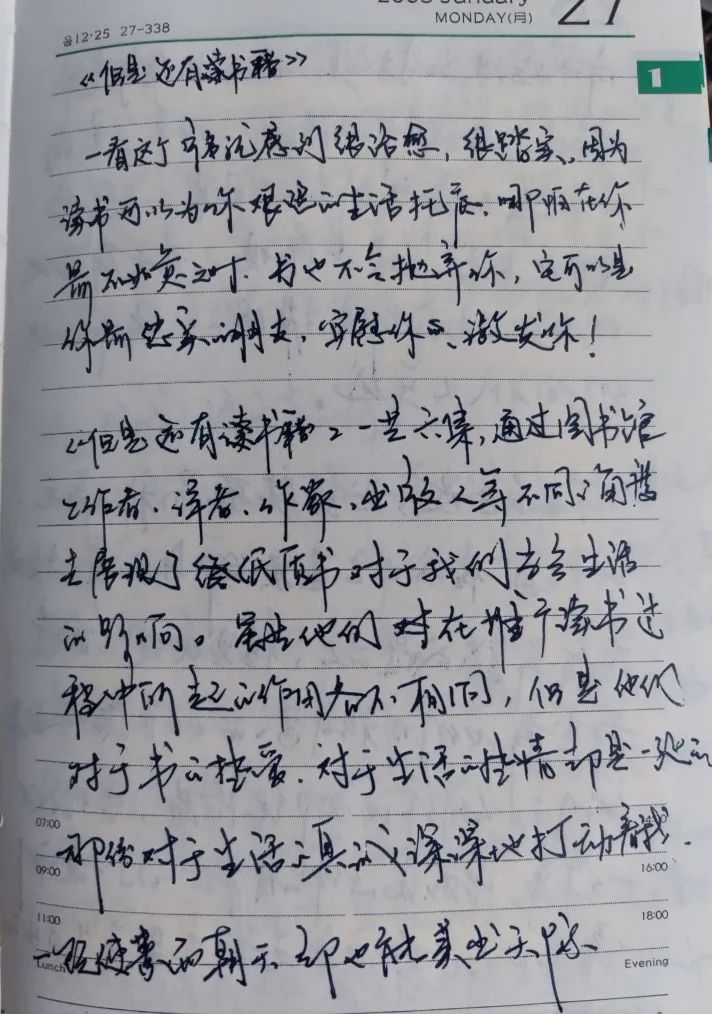 2003 January
MONDAY(月) 27
음12·25 27-338
1
《但是还有读书籍》
一看这个书名就感到很治愈,很踏实,因为
读书可以为你艰涩的生活托底,哪怕在你
最不如意之时,书也不会抛弃你,它可以是
你最忠实的朋友,安慰你、激发你!
《但是还有读书籍》一共六集,通过图书馆
工作者、译者、作家、出版人等不同的角度
去展现了纸质书对于我们当今生活
的影响。虽然他们在推广读书过
程中所起的作用各不相同,但是他们
对于书的挚爱、对于生活的热情却是一致的
07:00 14:00
那份对于生活的真诚深深地打动着我.
09:00 16:00
11:00 18:00
朝天 却也能
Lunch Evening